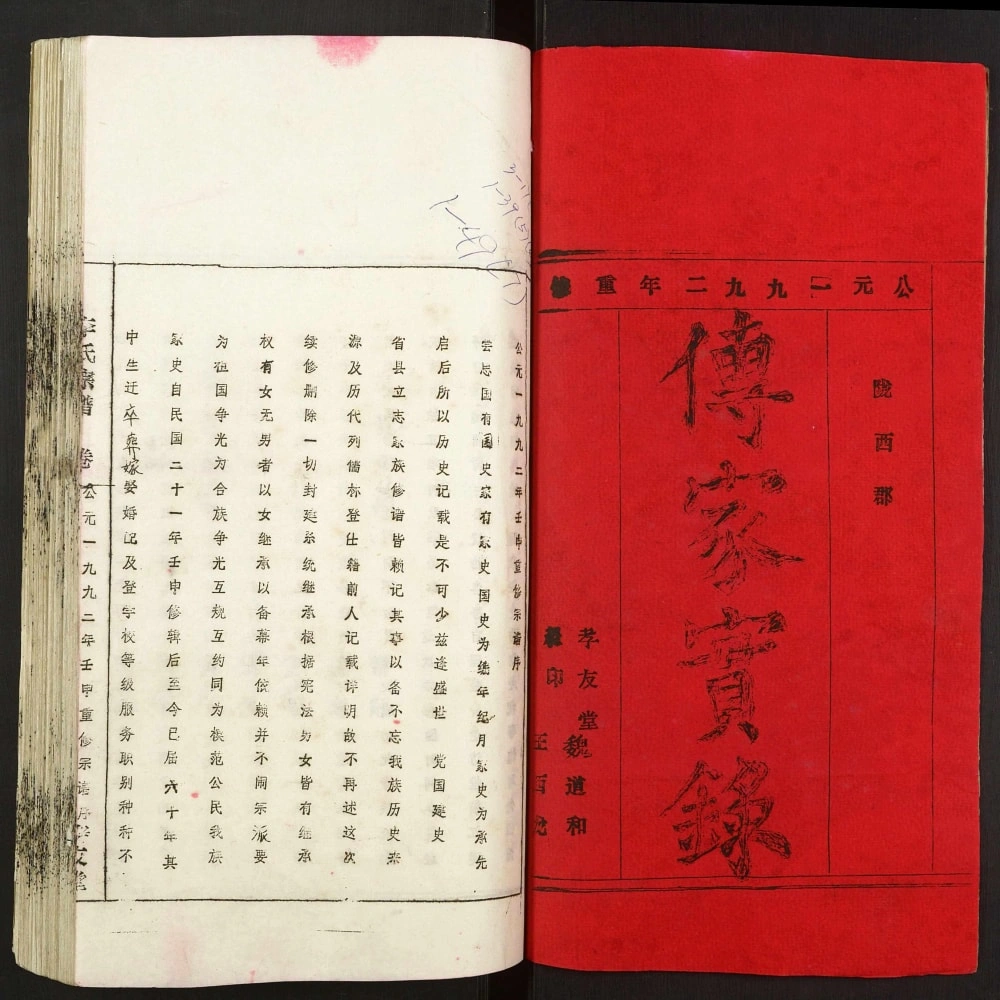 公元一九九二年重修
陇西郡
傳家寶錄
孝友堂魏道和
印
公元一九九二年壬申重修宗谱序
尝思国有国史家有家史国史为编年纪月家史为承先
启后所以历史记载是不可少兹逢盛世 党国建史
省县立志家族修谱皆赖记其事以备不忘我族历史来
源及历代列儒标登仕籍前人记载详明故不再述这次
续修删除一切封建系统继承根据宪法男女皆有继承
权有女无男者以女继承以备暮年依赖并不闹宗派要
为祖国争光为合族争光互规互约同为模范公民我族
家史自民国二十一年壬申修辑后至今已届六十年其
中生迁卒葬嫁娶婚配及登学校等级服务职别种种不
李氏宗谱 卷 公元一九九二年壬申重修宗谱序 孝友堂
3-1
1-39(5)
1-49(7)